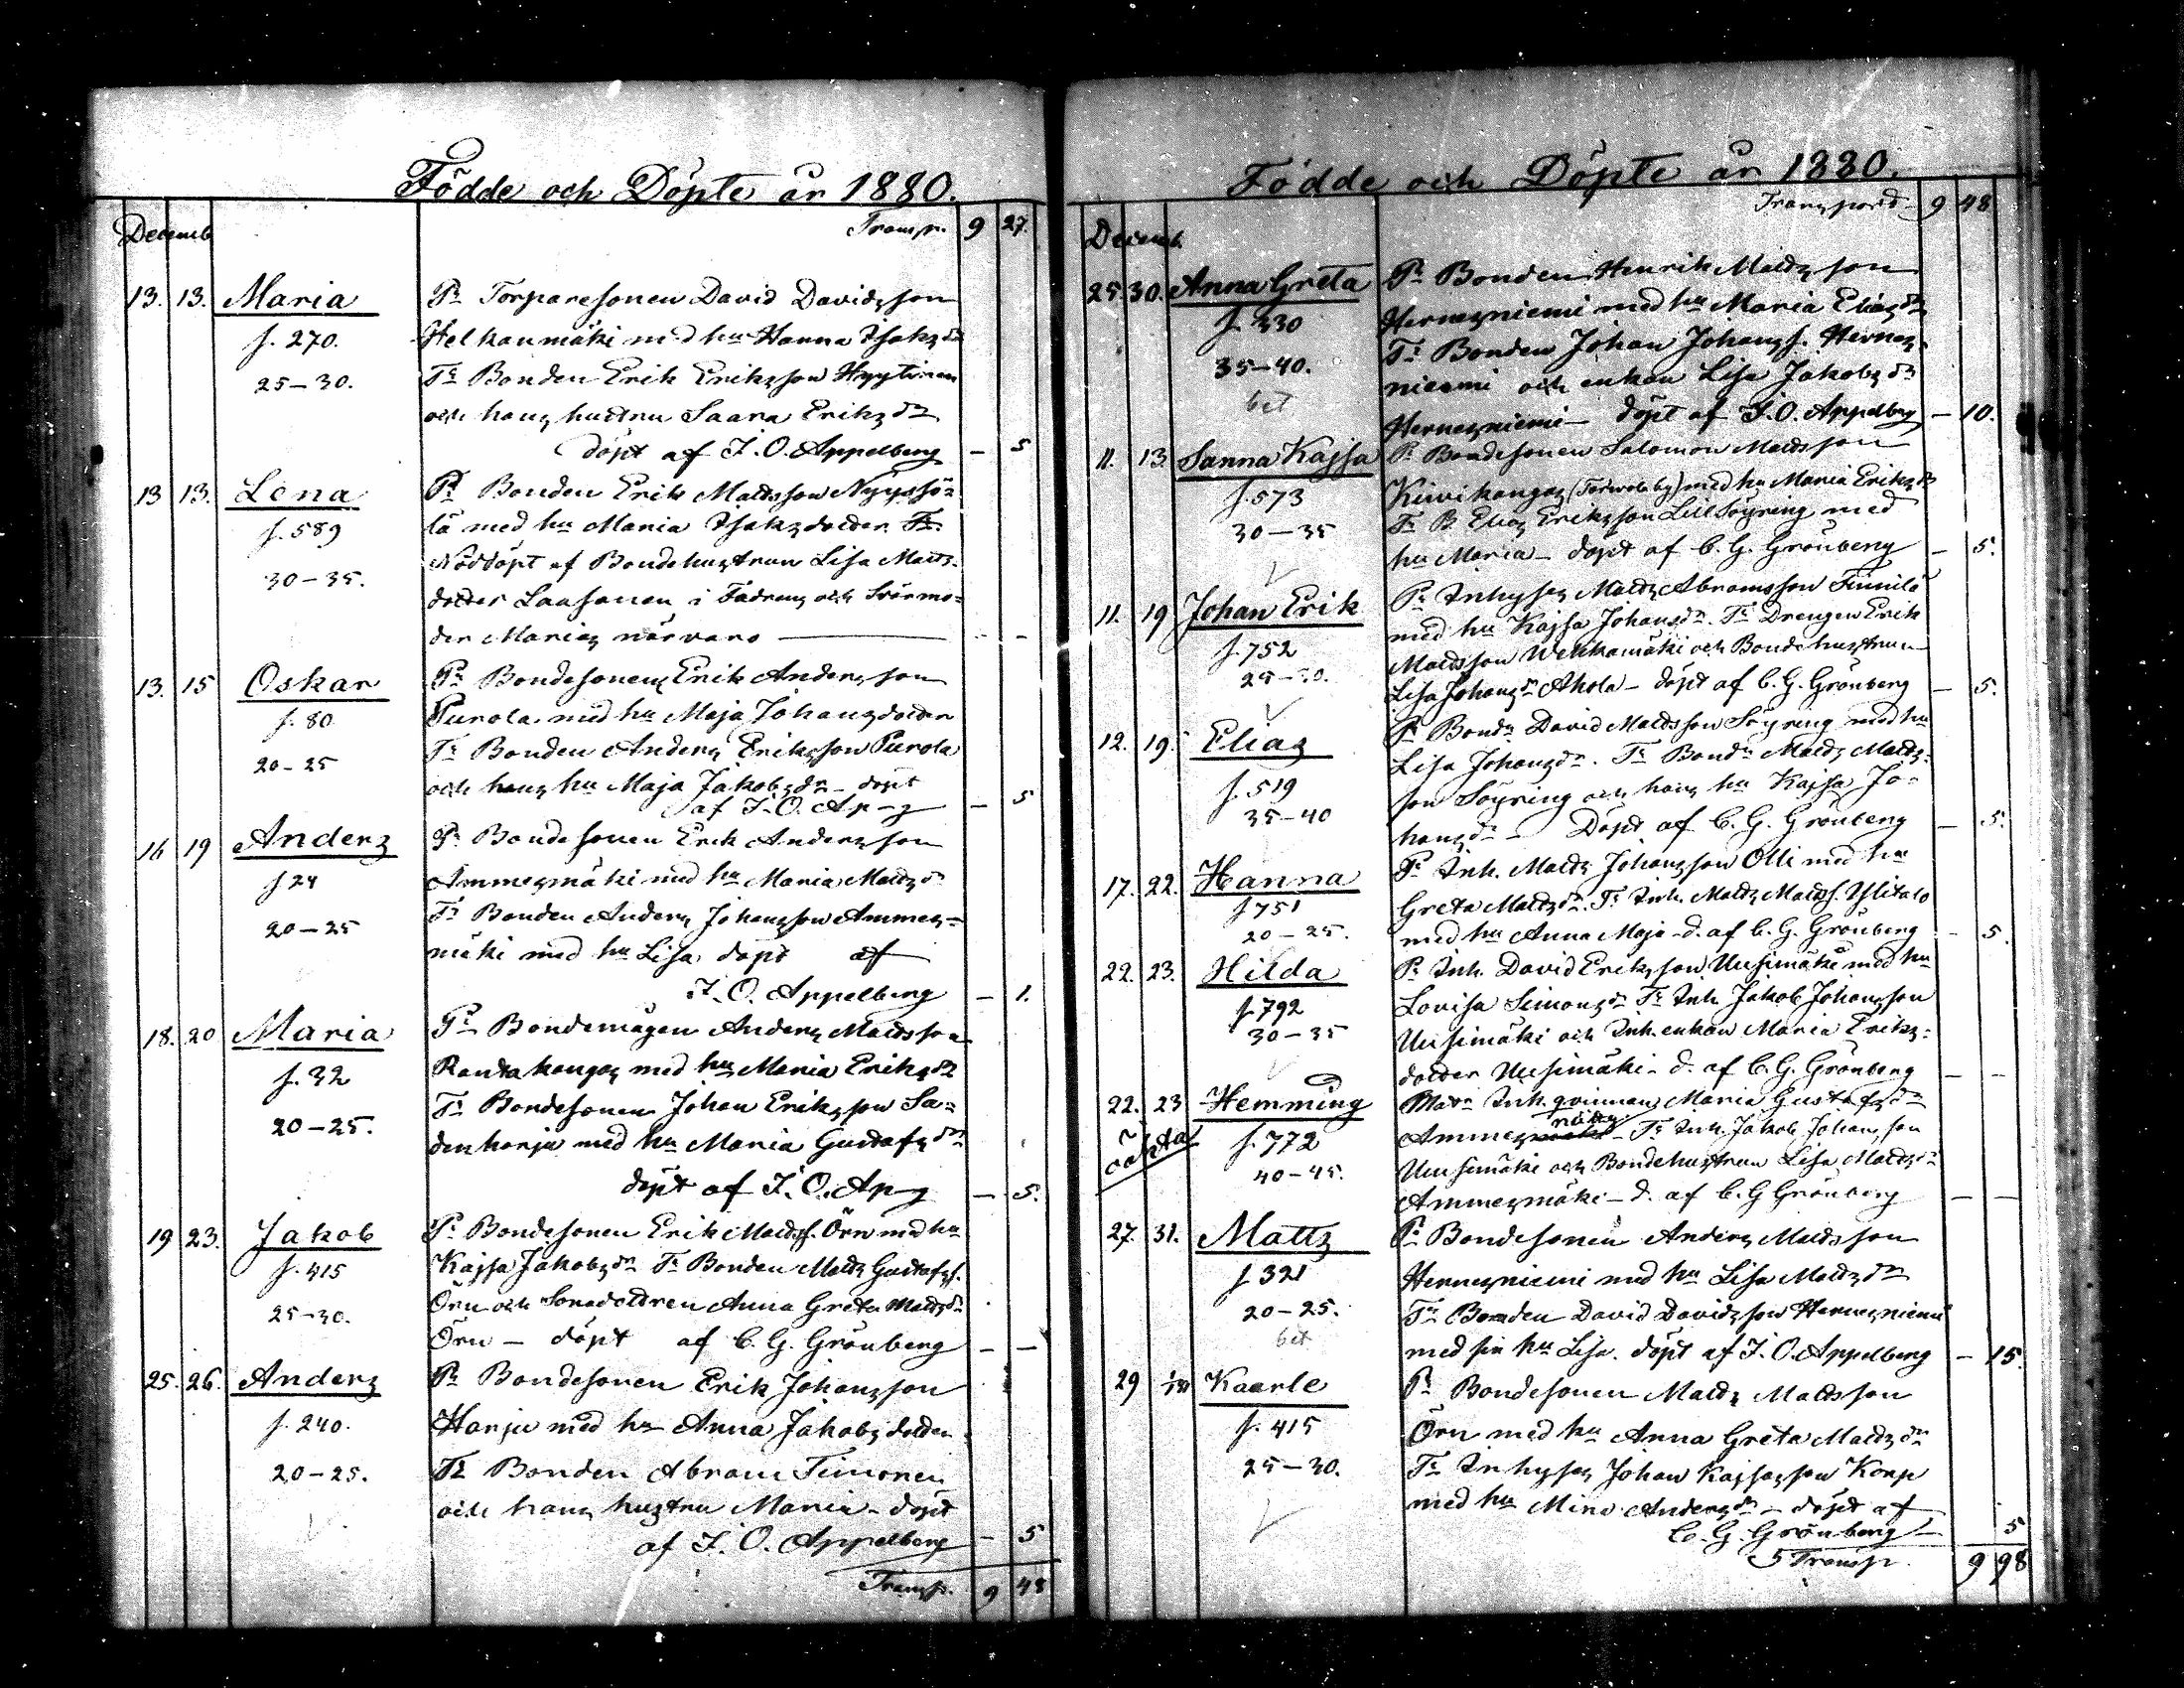 Födde och Döpte år 1880.
Decemb Transp. 9 27.
13. 13. Maria Pr Torparesonen David Davidsson
f. 270. Helkanmäki med hu Hanna Isaksdr
25–30. Tr Bonden Erik Eriksson Hyytinen
och hans hustru Saara Eriksdr
döpt af J. O. Appelberg – 5
13 13. Lena Pr Bonden Erik Mattsson Nyyssö=
f. 589 lä med hu Maria Isaksdotter Tr
Nöddöpt af Bondehustrun Lisa Matts-
30–35. dotter Laasanen i Fadrens och Svärmo=
der Marias närvaro – –
13. 15 Oskar Pr Bondesonens Erik Andersson
f. 80 Purola med hu Maja Johansdotter
20–25 Tr Bonden Anders Eriksson Purola
och hans hu Maja Jakobsdr – döpt
af J. O. Ap–g – 5
16 19 Anders Pr Bondesonen Erik Andersson
f 24 Ammesmäki med hu Maria Mattsdr
20–25 Tr Bonden Anders Johansson Ammes=
mäki med hu Lisa döpt af
J. O. Appelberg – 1.
18. 20 Maria Pr Bondemågen Anders Mattsson
f. 32 Rantakangas med hu Maria Eriksdr
20–25. Tr Bondesonen Johan Eriksson Sa=
denharju med hu Maria Gustafsdr
döpt af J. O. Ap–g – 5.
19 23. Jakob Pr Bondesonen Erik Mattsf. Örn med hu
f. 415 Kajsa Jakobsdr Tr Bonden Matts Gustafsf.
25–30. Örn och Sonedottren Anna Greta Mattsdr
Örn – döpt af C. G. Grönberg – –
25. 26. Anders Pr Bondesonen Erik Johansson
f. 240. Harju med hu Anna Jakobsdotter
20–25. Tr Bonden Abram Timonen
och hans hustru Maria – döpt
af J. O. Appelberg – 5
Transp. 9 48
Födde och Döpte år 1880.
Decemb. Transport 9 48
25. 30. Anna Greta Pr Bonden Henrik Mattsson
f. 330 Hernesniemi med hu Maria Eliasdr
35–40. Tr Bonden Johan Johansf. Hernes-
bet niemi och enkan Lisa Jakobsdr
Hernesniemi – döpt af J. O. Appelberg – 10.
11. 13 Sanna Kajsa Pr Bondesonen Salomon Mattsson
f. 573 Kivikangas (Terwola by) med hu Maria Eriksdr
30–35 Tr B. Elias Eriksson Lill Söyring med
hu Maria – döpt af C. G. Grönberg – 5.
11. 19 Johan Erik Pr Inhyses Matts Abramsson Finnilä
f. 752 med hu Kajsa Johansdr. Tr Drengen Erik
25–30. Mattsson Wehkamäki och Bondehustrun
Lisa Johansdr Ahola – döpt af C. G. Grönberg – 5.
12. 19. Elias Pr Bondn David Mattsson Söyring med hu
f. 519 Lisa Johansdr. Tr Bondn Matts Matts-
35–40 son Söyring och hans hu Kajsa Jo-
hansdr – Döpt af C. G. Grönberg – 5.
17. 22. Hanna Pr Inh. Matts Johansson Olli med hu
f 751 Greta Mattsdr. Tr Inh. Matts Mattsf. Ylitalo
20–25. med hu Anna Maja – d. af C. G. Grönberg – 5.
22. 23. Hilda Pr Inh. David Eriksson Uusimäki med hu
f. 792 Lovisa Simonsdr Tr Inh. Jakob Johansson
30–35 Uusimäki och Inh. enkan Maria Eriks=
dotter Uusimäki – d. af C. G. Grönberg – –
22. 23 Hemming Modn Inh. qvinnan Maria Gustafsdr
oäkta f. 772 Ammesmäki – Tr Inh. Jakob Johansson
40–45. Uusimäki och Bondehustrun Lisa Mattsdr
Ammesmäki – d. af C. G Grönberg – –
27. 31. Matts Pr Bondesonen Anders Mattsson
f 321 Hernesniemi med hu Lisa Mattsdr
20–25. Tr Bonden David Davidsson Hernesniemi
bet med sin hu Lisa. döpt af J. O. Appelberg – 15.
29 1/1 81 Kaarle Pr Bondesonen Matts Mattsson
f. 415 Örn med hu Anna Greta Mattsdr
25–30. Tr Inhyses Johan Kajsasson Korp
med hu Mina Andersdr – döpt af
C. G. Grönberg – 5
Transp. 9 98